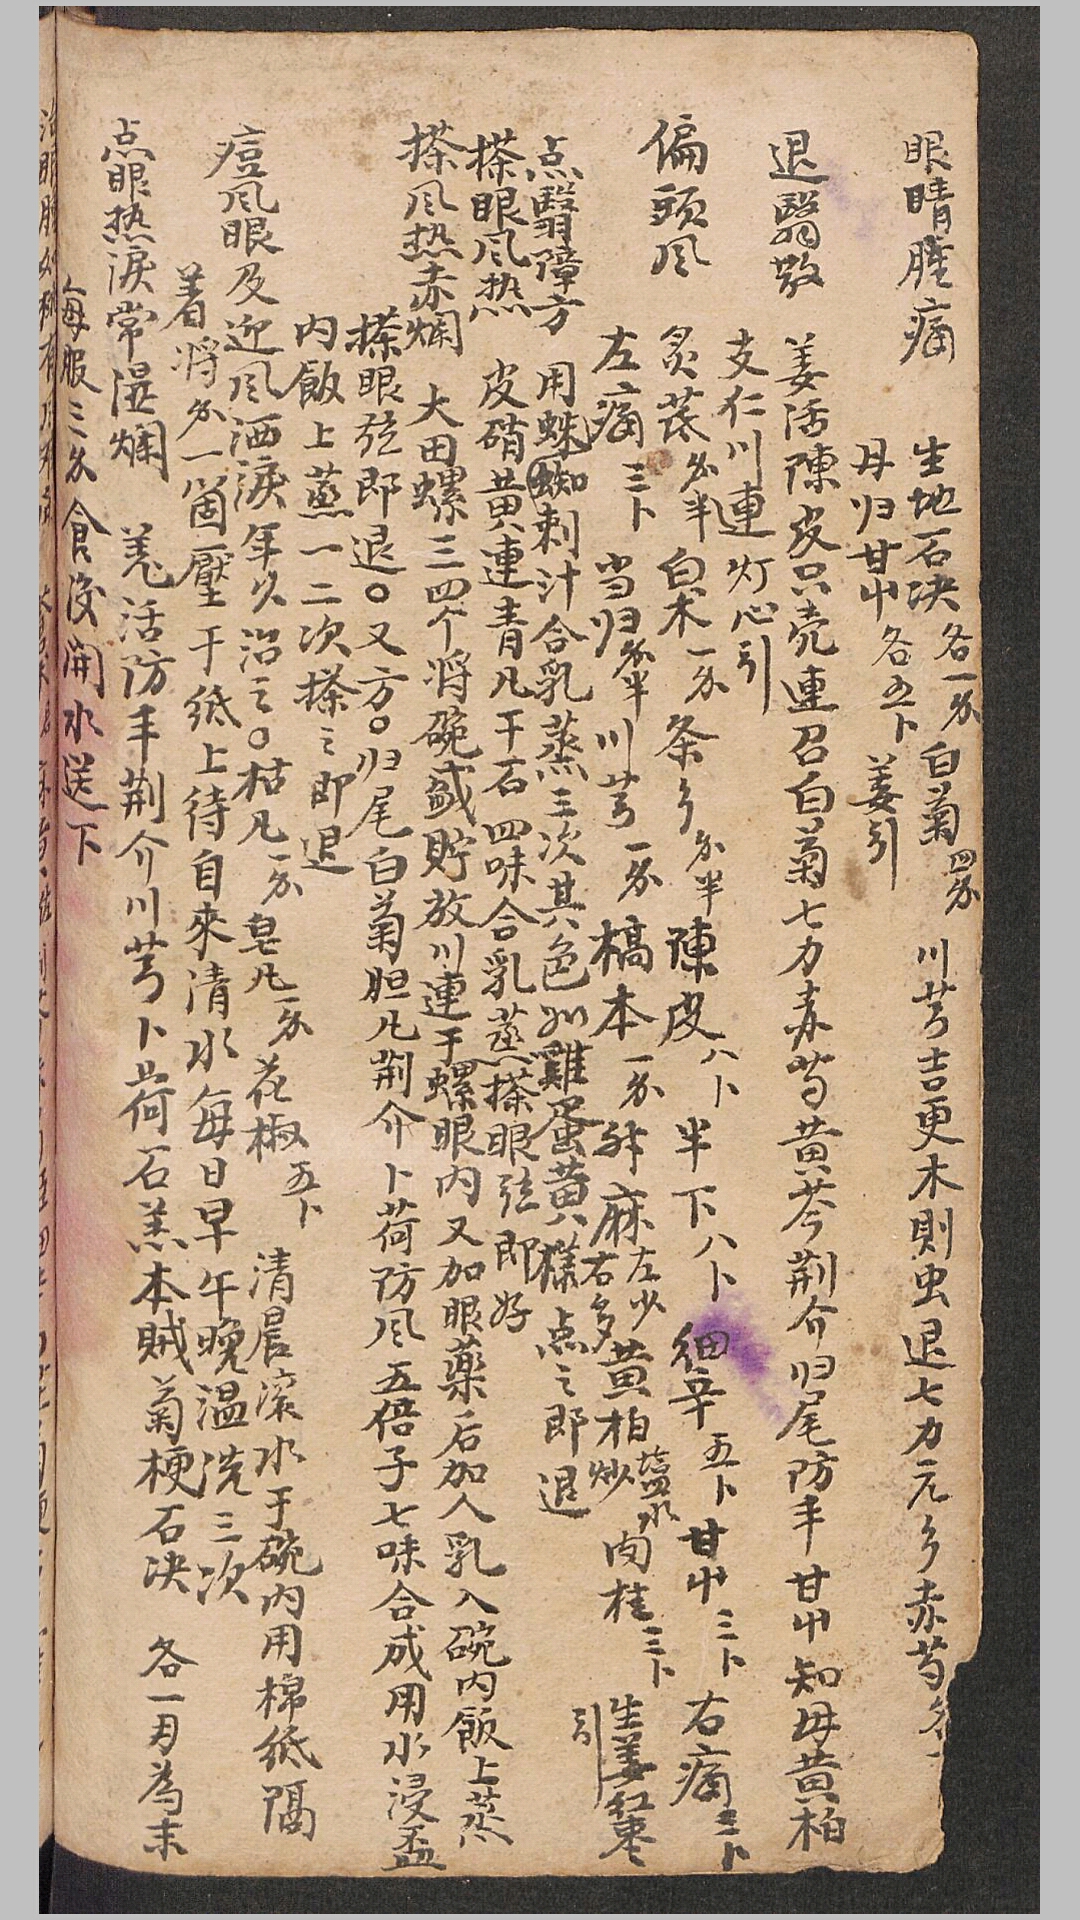 眼睛腫痛 生地石决各一分白菊四分 川芎吉更木則虫退七力元彡赤芍各一
丹归甘艸各五卜 姜引
退翳散 姜活陳皮只壳連召白菊七力赤芍黄芩荆介归尾防丰甘艸知母黄柏
支仁川連灯心引
偏頭风 炙茋分半白术一分条彡分半陳皮八卜半下八卜細辛五卜甘艸三卜右痛三卜
左痛三卜当归分半川芎一分槁本一分升麻左少右多黄柏塩水炒肉桂三卜生姜紅棗引
点翳障方 用蛛蜘刺汁合乳蒸三次其色如雞蛋黄樣点之即退
搽眼风热 皮硝黄連青凡干石四味合乳蒸搽眼弦即好
搽风热赤爛 大田螺三四个将碗盛貯放川連于螺眼内又加眼藥后加人乳入碗内飯上蒸
搽眼弦即退○又方○归尾白菊胆凡荆介卜荷防风五倍子七味合成用水浸盃
内飯上蒸一二次搽之即退
痘风眼及迎风洒淚年久治之○枯凡一分皂凡一分花椒五卜 清晨滚水于碗内用棉纸隔
着将分一箇壓于纸上待自來清水每日早午晚温洗三次
点眼热淚常湿爛 羌活防丰荆介川芎卜荷石羔木賊菊梗石决 各一月為末
每服三分食後開水送下